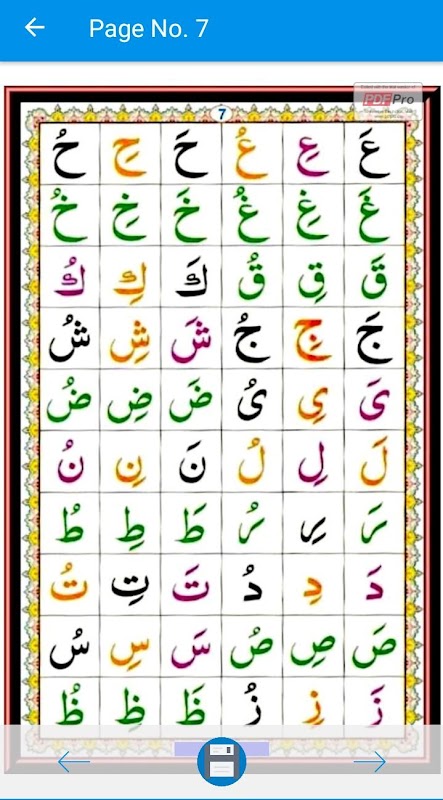 Page No. 7
PDF Pro
7
عَ عِ عُ حَ حِ حُ
غَ غِ غُ خَ خِ خُ
قَ قِ قُ كَ كِ كُ
جَ جِ جُ شَ شِ شُ
یَ یِ یُ ضَ ضِ ضُ
لَ لِ لُ نَ نِ نُ
رَ رِ رُ طَ طِ طُ
دَ دِ دُ تَ تِ تُ
صَ صِ صُ سَ سِ سُ
زَ زِ زُ ظَ ظِ ظُ